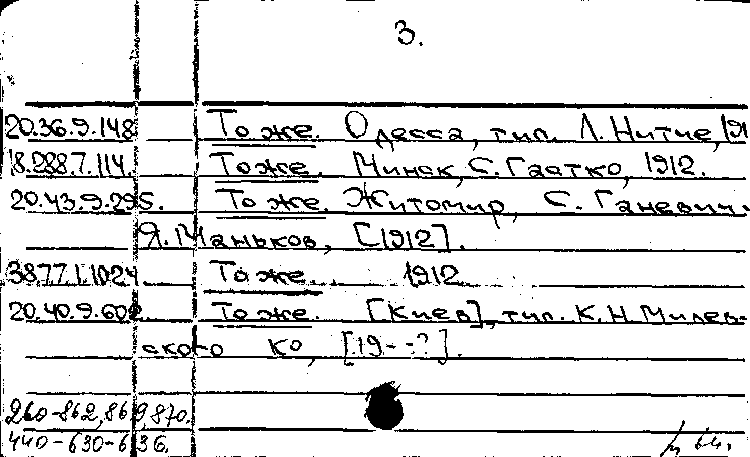 3.
20.36.9.148 То же. Одесса, тип. Л. Нитче, 191
18.288.7.114. То же. Минск, С. Гаатко, 1912.
20.43.9.295. То же. Житомир, С. Ганевич.
Я. Маньков, [1912].
38.77.1.1024 То же. 1912
20.40.9.602. То же. [Киев], тип. К. Н. Милев-
ского К°, [19--?].
260-862,869,870.
440-630-636.